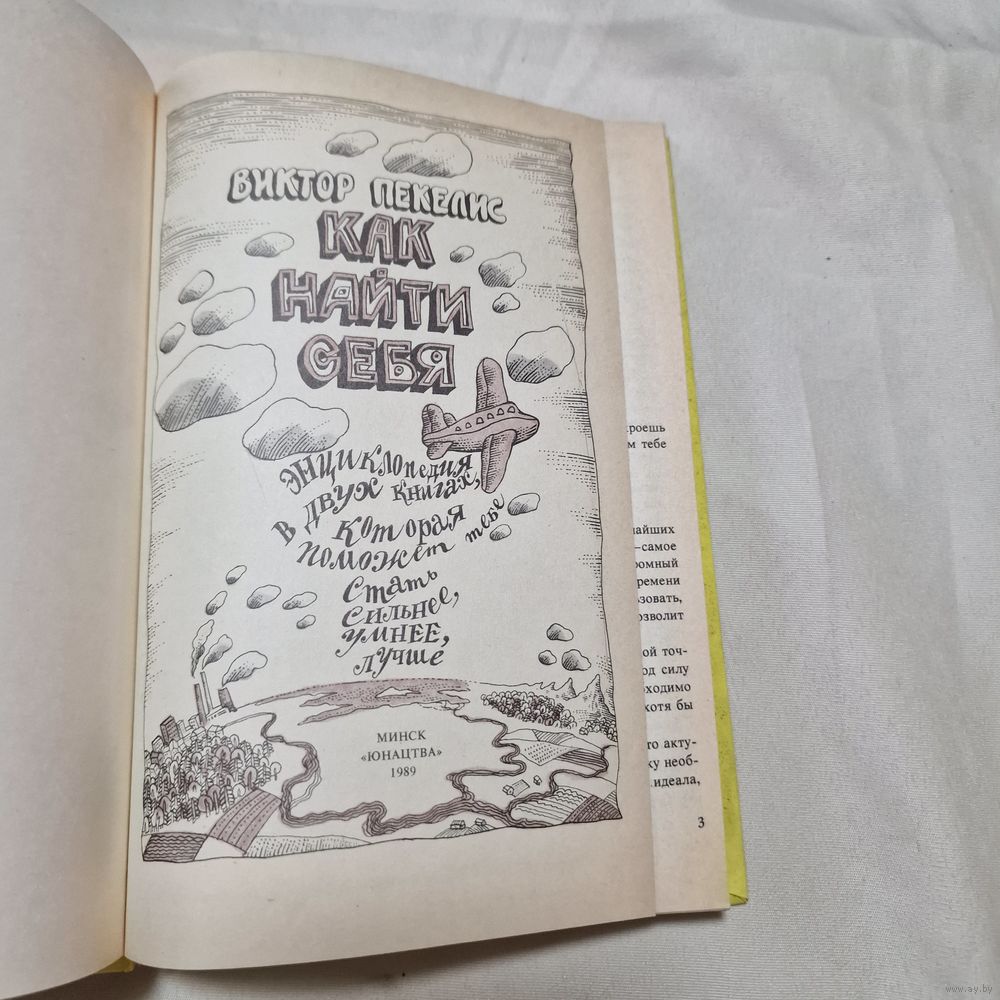 ВИКТОР ПЕКЕЛИС
КАК
НАЙТИ
СЕБЯ
ЭНЦИКЛОПЕДИЯ
В ДВУХ КНИГАХ,
КОТОРАЯ
ПОМОЖЕТ тебе
Стать
СИЛЬНЕЕ,
УМНЕЕ,
ЛУЧШЕ
МИНСК
«ЮНАЦТВА»
1989
кроешь
м тебе
чайших
—самое
ромный
ремени
ьзовать,
озволит
ой точ-
од силу
ходимо
хотя бы
то акту-
ку необ-
идеала,
3
www.ay.by